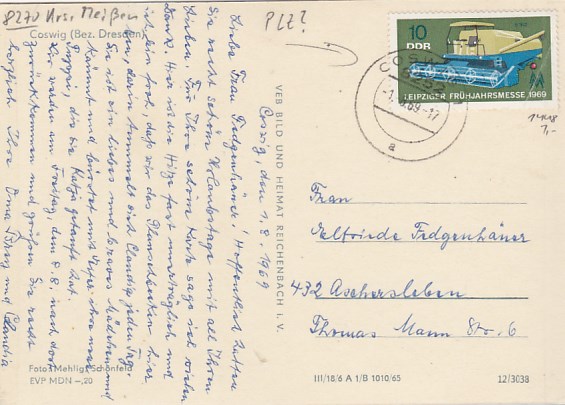 8270 Krs. Meißen
PLZ?
Coswig (Bez. Dresden)
10
DDR
LEIPZIGER FRÜHJAHRSMESSE 1969
COSWIG
-1.8.69-17
a
1,-
VEB BILD UND HEIMAT REICHENBACH i. V.
Coswig, den 1.8.1969
Liebe Frau Fedgenhäner! Hoffentlich hatten
Sie recht schöne Urlaubstage mit all Ihren
Lieben. Für Ihre schöne Karte sage ich vielen
Dank. Hier ist die Hitze fast unerträglich und
ich bin froh, daß wir das Planschbecken hier
haben, darin tummelt sich Claudia jeden Tag.
Sie ist ein liebes und braves Mädchen und
kämmt und bürstet mit Eifer ihre neue
Puppe, die sie Katja getauft hat.
Wir werden am Freitag, dem 8.8. nach dort
zurückkommen und grüßen Sie recht
herzlich Ihre Oma und Claudia
Frau
Elfriede Fedgenhäner
432 Aschersleben
Thomas Mann Str. 6
Foto: Mehlig, Schönfeld
EVP MDN -,20
III/18/6 A 1/B 1010/65
12/3038